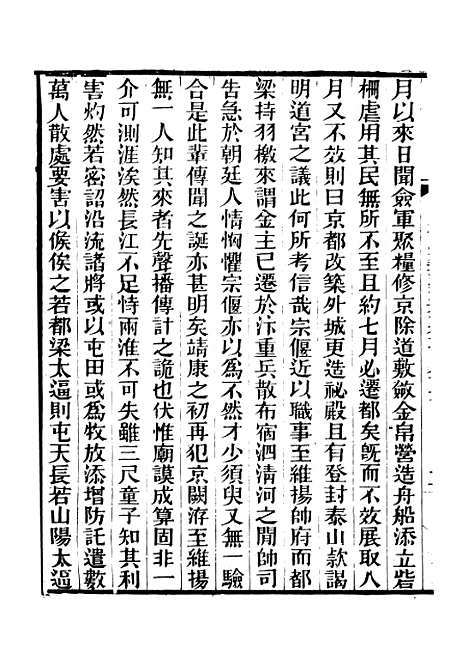 月以來日聞僉軍聚糧修京除道敷斂金帛營造舟船添立砦
柵虐用其民無所不至且約七月必遷都矣旣而不效展取八
月又不效則曰京都改築外城更造祕殿且有登封泰山款謁
明道宮之議此何所考信哉宗偃近以職事至維揚帥府而都
梁持羽檄來謂金主已遷於汴重兵散布宿泗清河之閒帥司
告急於朝廷人情恟懼宗偃亦以爲不然才少須臾又無一驗
合是此輩傳聞之誕亦甚明矣靖康之初再犯京闕洊至維揚
無一人知其來者先聲播傳計之詭也伏惟廟謨成算固非一
介可測涯涘然長江不足恃兩淮不可失雖三尺童子知其利
害灼然若密詔沿流諸將或以屯田或爲牧放添增防託遣數
萬人散處要害以俟俟之若都梁太逼則屯天長若山陽太逼